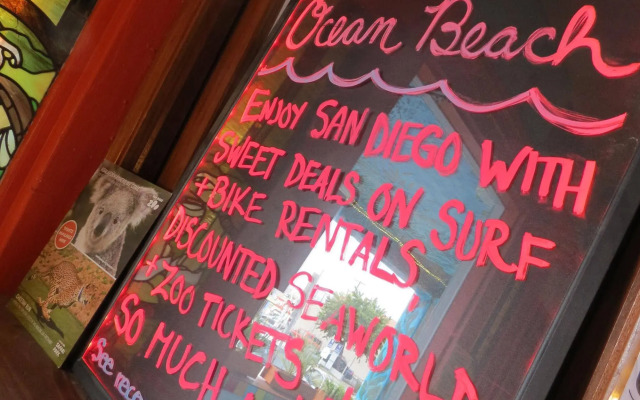 Ocean Beach
ENJOY SAN DIEGO WITH
SWEET DEALS ON SURF
+BIKE RENTALS,
DISCOUNTED SEAWORLD
+ZOO TICKETS
SO MUCH
See